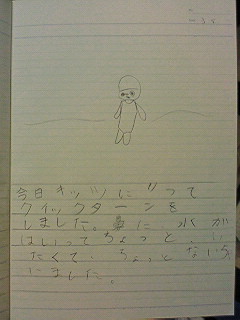 今日キッツに行って
クイックターンを
しました。鼻に水が
はいってちょっと、い
たくて、ちょっとないち
いました。